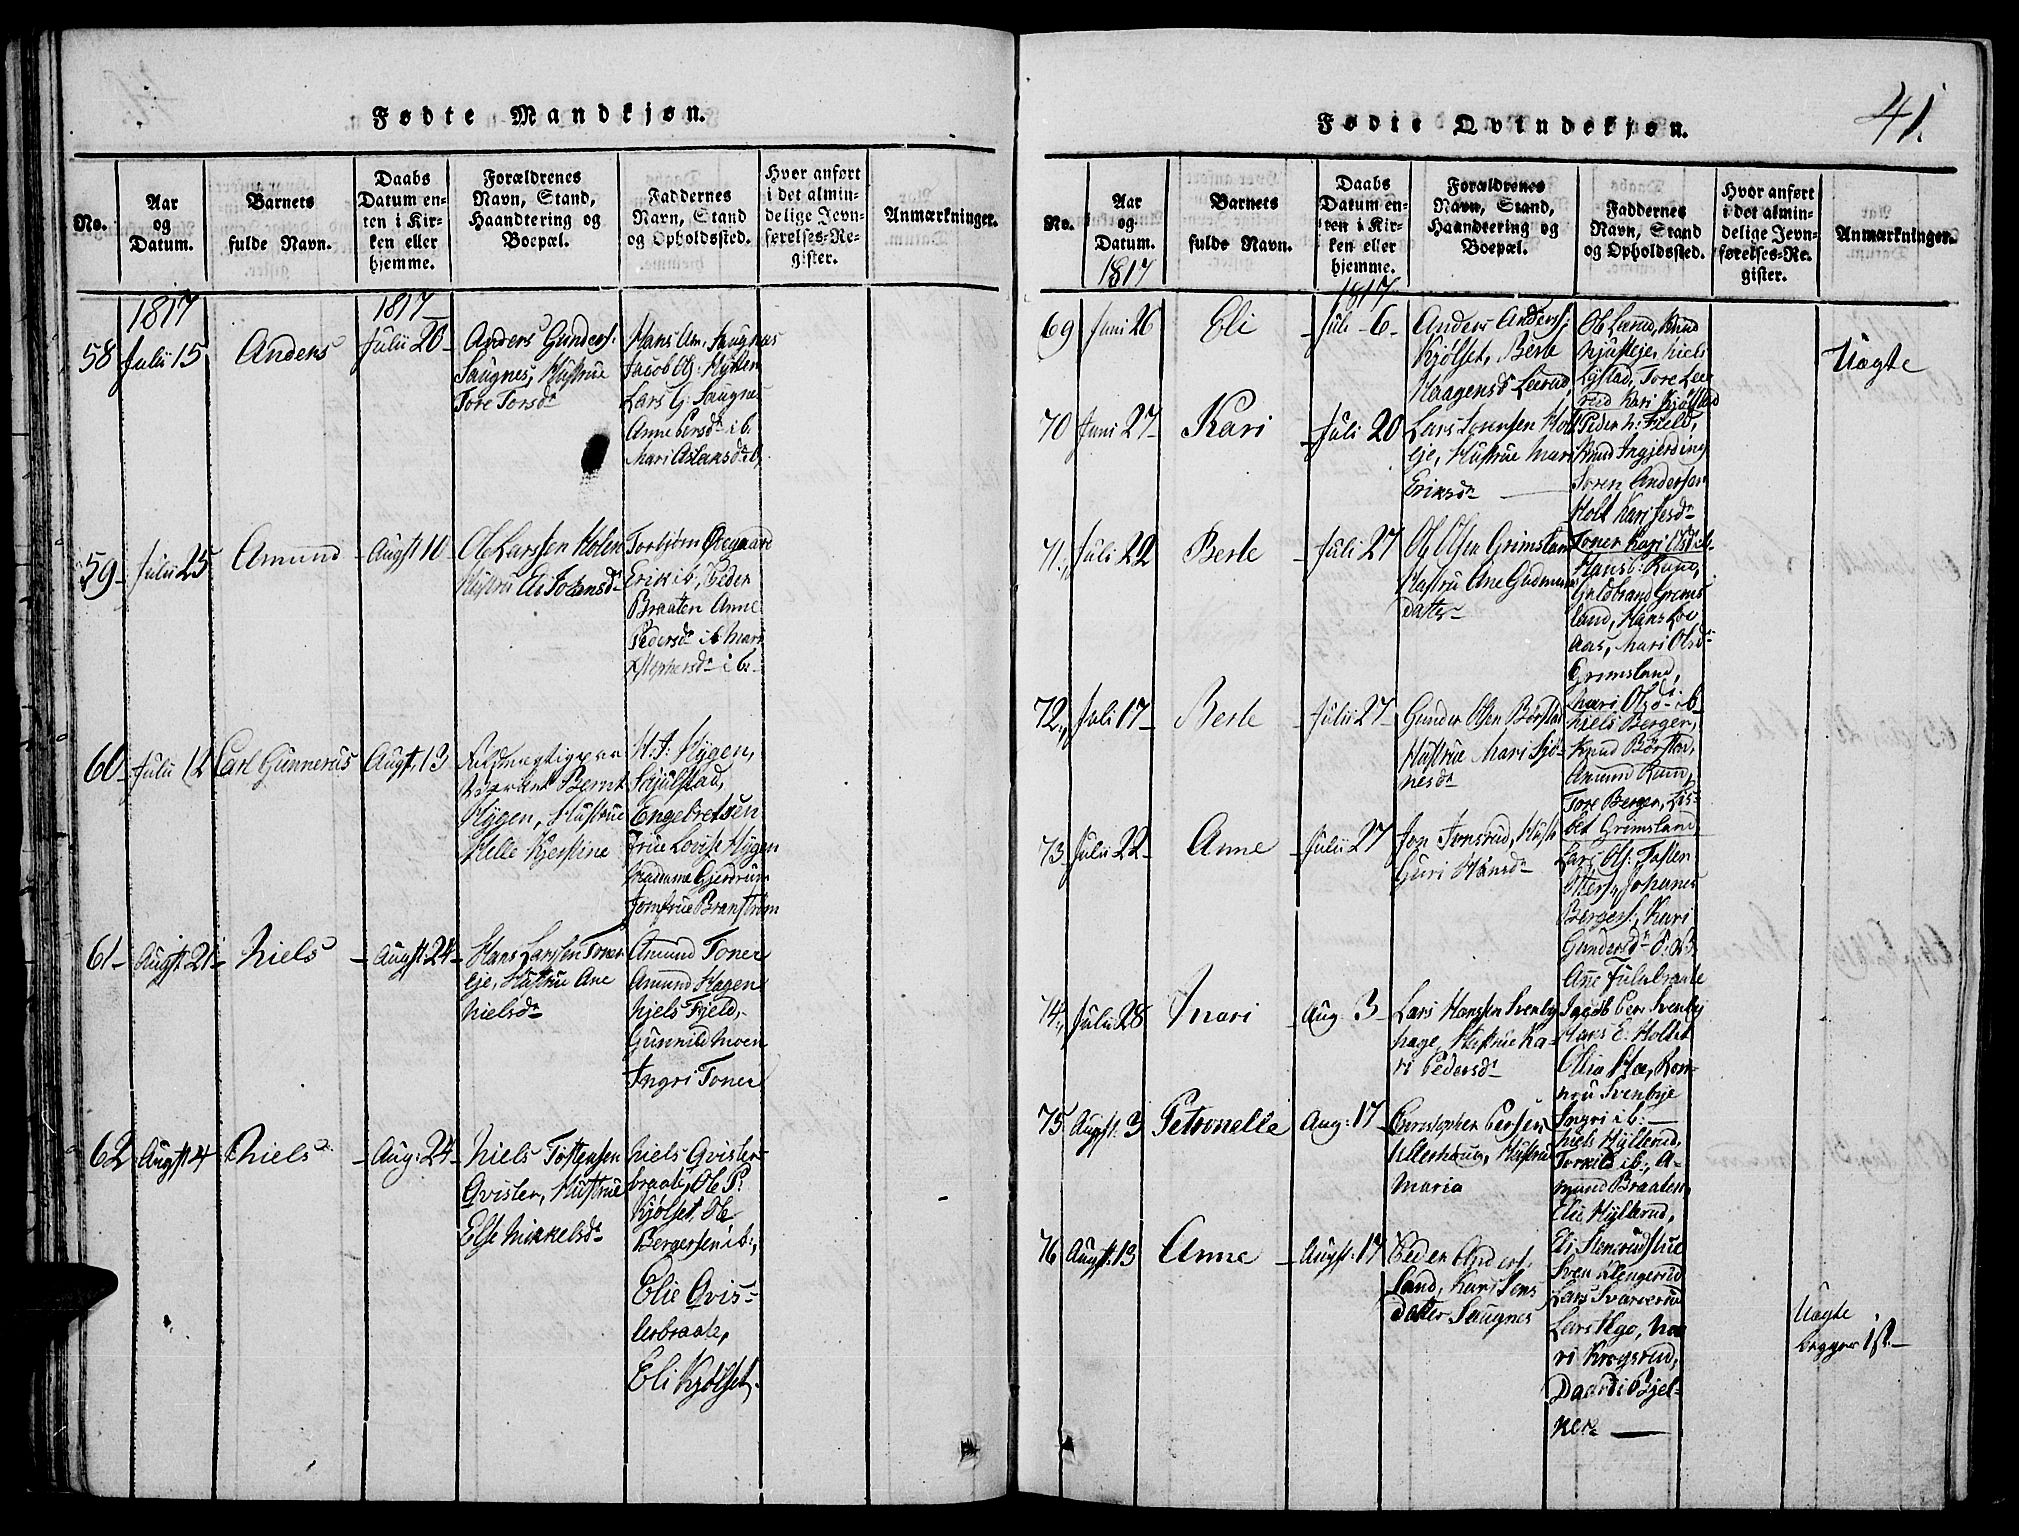 Fødte Mandkjøn.
No.
Aar
og
Datum.
Barnets
fulde Navn.
Daabs
Datum en-
ten i Kir-
ken eller
hjemme.
Forældrenes
Navn, Stand,
Haandtering og
Boepæl.
Faddernes
Navn, Stand
og Opholdssted.
Hvor anført
i det almin-
delige Jevn-
førelses-Re-
gister.
Anmærkninger.
1817
1817
58 Julii 15 Anders Julii 20
Anders Gunders:
Saugnes, Hustrue
Tore Torsdr
Hans Am: Saugnes
Jacob Ols: Hytten
Lars G: Saugnes
Anne Persdr i b.
Mari Aslaksdr i b.
59 Julii 25 Amund Augst 10
Ole Larssen Holen
Hustru Eli Johansdr
Torbjørn Øegaard
Erik i b, Peder
Braaten Anne
Pedersdr i b Mari
i b.
60 Julii 12 Carl Gunnerus Augst. 13
Bernt
Hygen, Hustrue
Helle Kjerstine
H. J. Hygen,
Skjulstad,
Engebretsen
Frue Lovise Hygen
Madame Gjerdrum
Jomfrue Branstrøm
61 Augst 21 Niels Augst 24
Hans Larssen Toner
eje, Hustrue Ane
Nielsdr
Amund Toner
Amund Hagen
Niels Fjeld,
Gunnild Moen
Ingri Toner
62 Augst 4 Niels Aug: 24
Niels Tostensen
Qvisler, Hustrue
Else Mikkelsdr
Niels Qvisler-
braate, Ole P.
Kjølset, Ole
Bergersen i b:,
Elie Qvis-
lerbraate,
Eli Kjølset.
41.
Fødte Qvindekjøn.
No.
Aar
og
Datum.
Barnets
fulde Navn.
Daabs
Datum en-
ten i Kir-
ken eller
hjemme.
Forældrenes
Navn, Stand,
Haandtering og
Boepæl.
Faddernes
Navn, Stand
og Opholdssted.
Hvor anført
i det almin-
delige Jevn-
førelses-Re-
gister.
Anmærkninger.
1817
1817
69 Juni 26 Eli Juli 6
Anders Anders:
Kjølset, Berte
Haagensdr Leerud
Ole Lerud, Knud
eje, Niels
Lystad, Tore Lee
rud Kari Kjølstad
Uægte
70 Juni 27 Kari Juli 20
Lars Sørensen Holt
eje, Hustrue Mari
Eriksdr
Peder N: Field,
Knud Ingjerding
Søren Andersen
Holt Kari Jesdr
Toner Kari Olsdr ib.
71 Juli 22 Berte Juli 27
Ole Olsen Grimsland
Hustru Ane Gudmuns
datter
Hans b: Rund,
Guldbrand Grims
land, Hans Loe
aas, Mari Olsdr
Grimsland,
Mari Olsdr i b
72 Juli 17 Berte Julii 27
Gunder Olsen Børstad
Hustrue Mari Sjø-
nesdr
Niels Berger,
Knud Børstad,
Amund Rund,
Tore Berger, Lis-
bet Grimsland,
73 Julii 22 Anne Julii 27
Jon Tonsrud, Hustr
Guri Hansdr
Lars Ols: Tosten
Otters, Johanes
Bergers, Kari
Gundersdr
Ane Fulubraate
74 Julii 28 Mari Aug. 3
Lars Hanssen Svenby
hage, Hustrue Ka-
ri Pedersdr
Jacob Per: Svenby
Hans E. Holtet
Elia Moe, Ron-
nou Svenbye
Ingri i b.
75 Augst. 3 Petronelle Aug: 17
Christopher Persen
Ullerhoug, Hustrue
Maria
Niels Hyllerud,
Torkild i b:, A-
mund Braaten,
Elie Hyllerud,
Eli Stensrudstue
76 Augst. 13 Anne Augst: 17
Peder Anders:
Sand, Kari Jens
datter Saugnes
Sven Klengerud
Lars Svarverud
Lars Ugo, Ma
ri Krogsrud,
Daardi Bjel-
ker
Uægte
begges 1st.